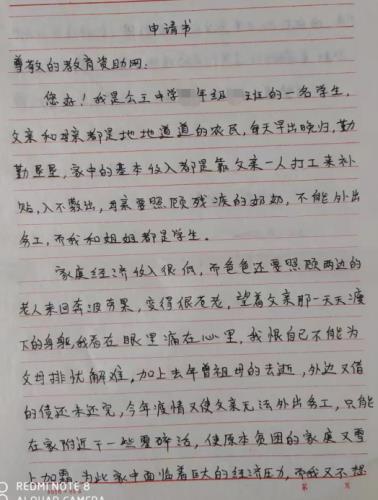 申请书
尊敬的教育资助网:
您好!我是公王中学 年级 班的一名学生,
父亲和母亲都是地地道道的农民,每天早出晚归,勤
勤恳恳,家中的基本收入都是靠父亲一人打工来补
贴,入不敷出,母亲要照顾残疾的奶奶,不能外出
务工,而我和姐姐都是学生。
家庭经济收入很低,而爸爸还要照顾两边的
老人来回奔波劳累,变得很苍老,望着父亲那一天天瘦
下的身躯,我看在眼里痛在心里,我恨自己不能为
父母排忧解难,加上去年曾祖母的去逝,外边又借
的债还未还完,今年疫情又使父亲无法外出务工,只能
在家附近干一些零碎活,使原本贫困的家庭又雪
上加霜,为此家中面临着巨大的经济压力,而我又不想
REDMI NOTE 8
AI QUAD CAMERA
第 页